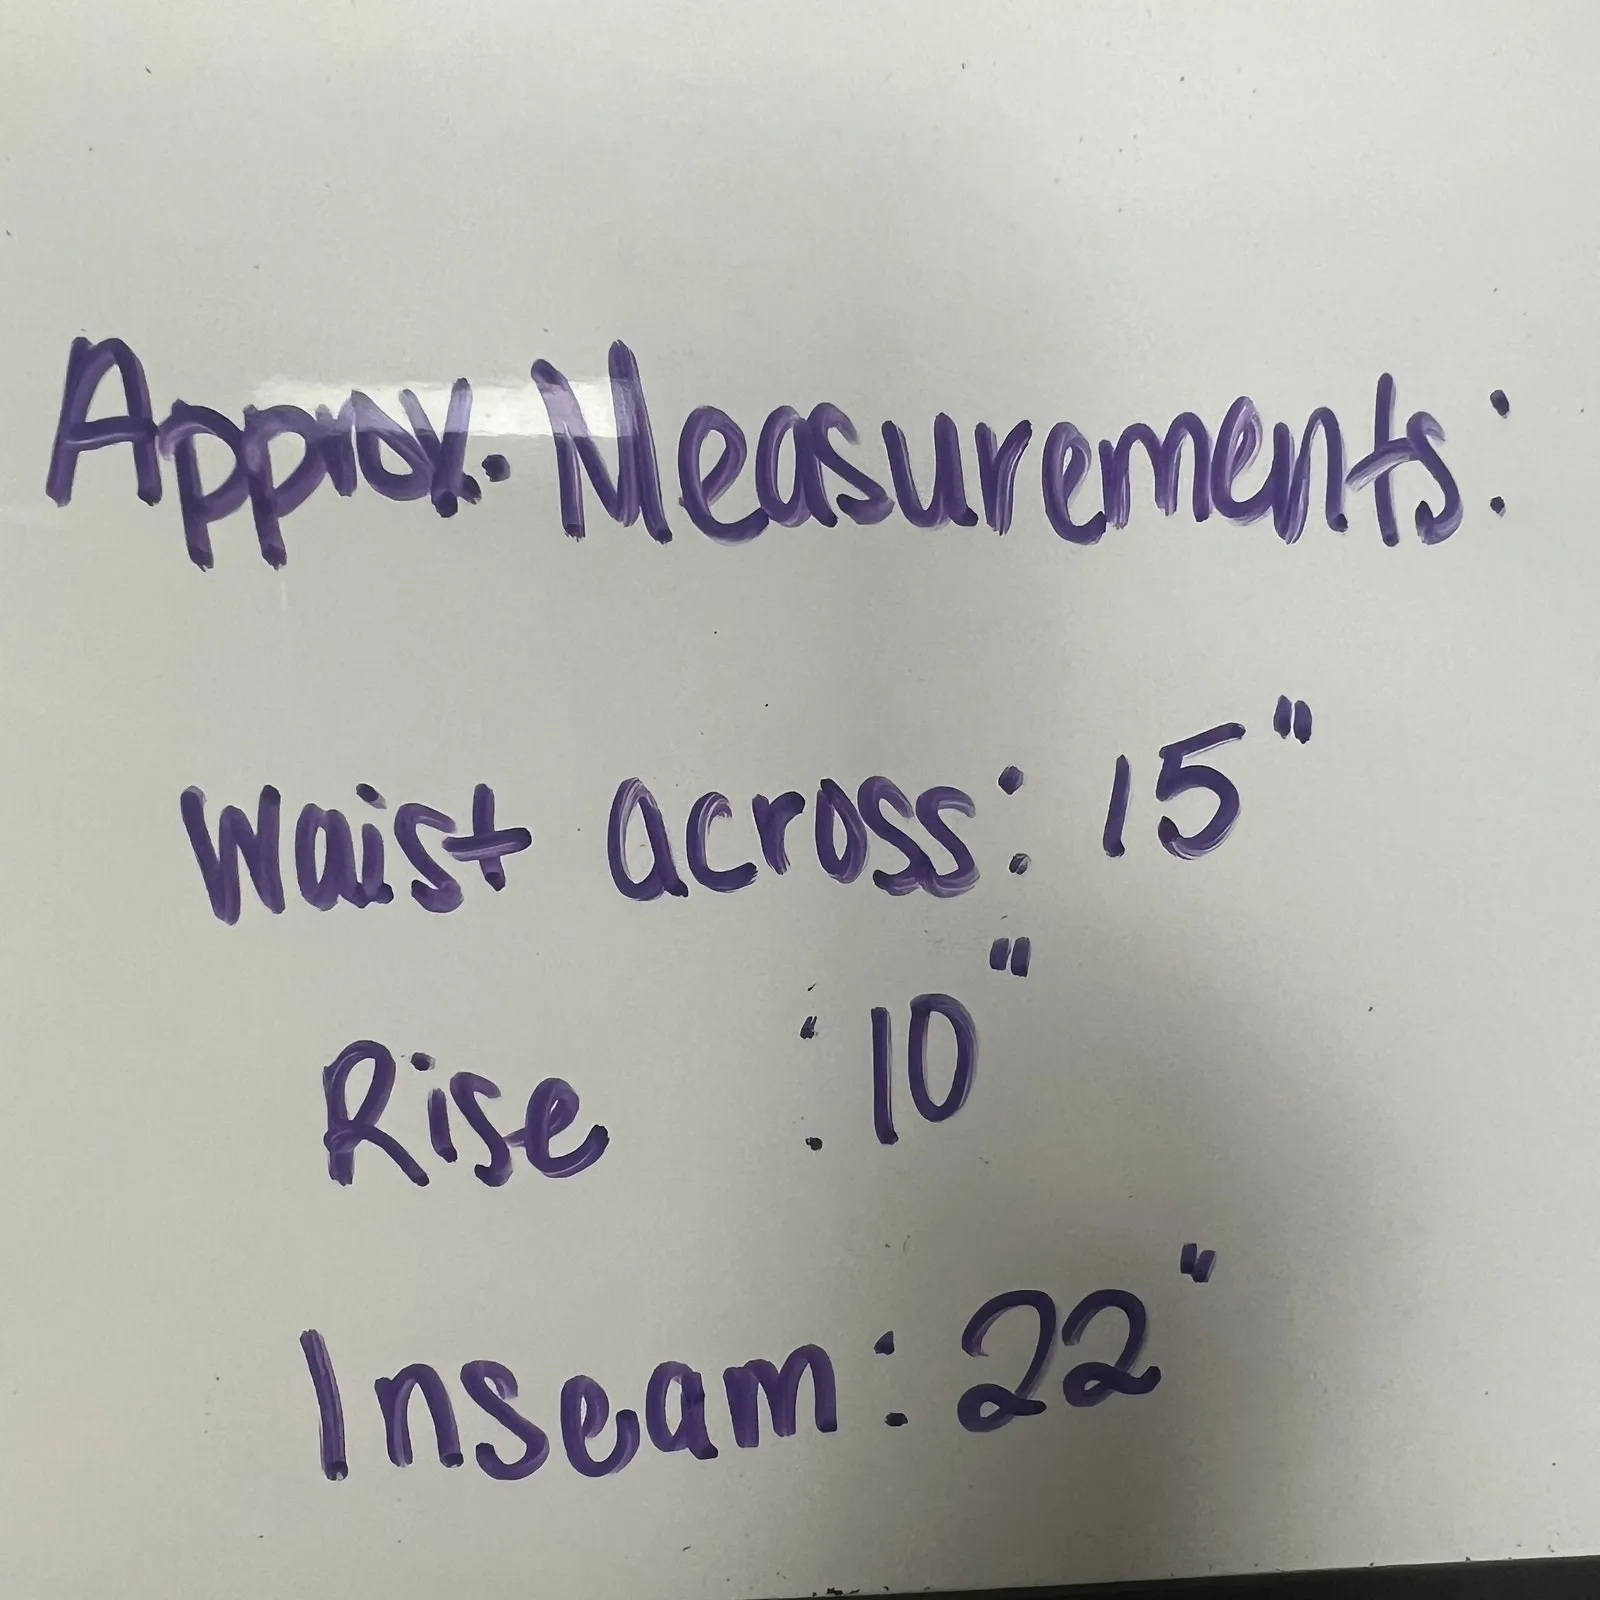 Approx. Measurements:
Waist across: 15"
Rise : 10"
Inseam: 22"